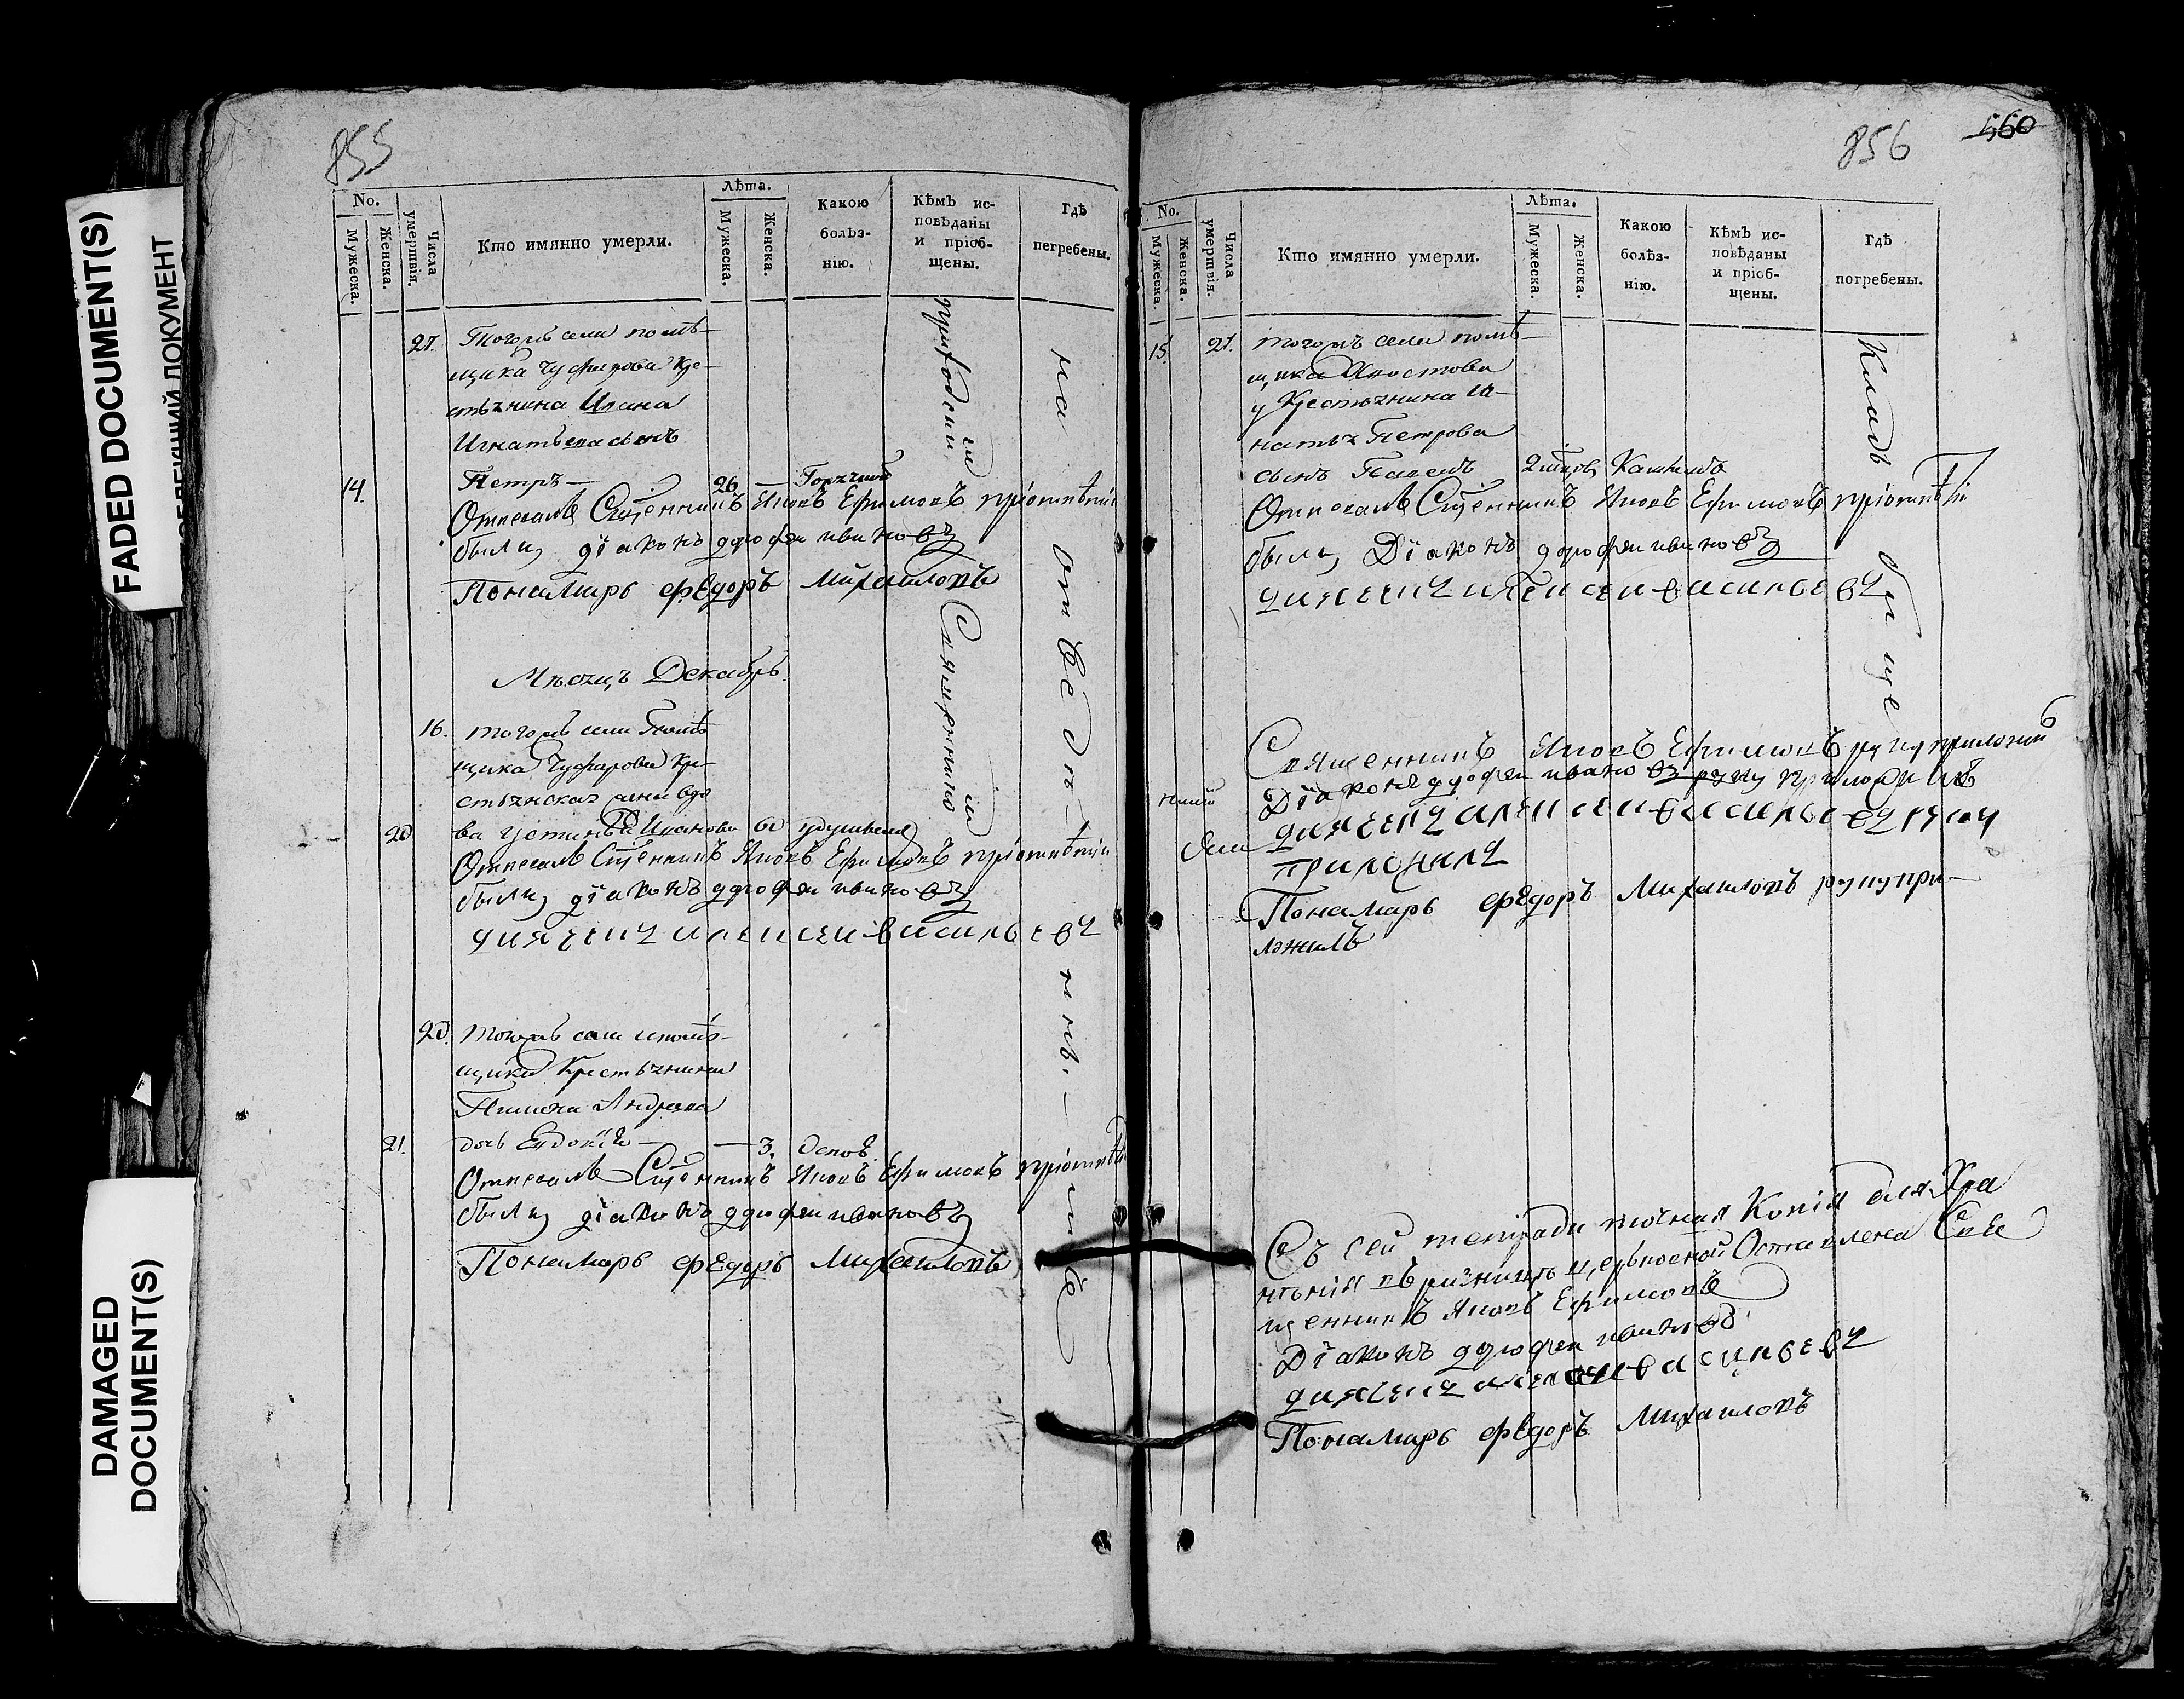 FADED DOCUMENT(S)
DAMAGED
DOCUMENT(S)
855
No.
Мужеска.
Женска.
Числа
умертвія.
Кто имянно умерли.
Лѣта.
Мужеска.
Женска.
Какою
болѣз-
нію.
Кѣмъ ис-
повѣданы
и пріоб-
щены.
Гдѣ
пегребены.
27. Тогожъ села помѣ-
щика Чуфарова Кре-
стьянина Ивана
Игнатьева сынъ
14. Петръ — 26 — Горячкою
Отпевалъ Сщенникъ Яковъ Ефимовъ
были, діаконъ Дорофеи ивановъ
Понамарь федоръ Михаиловъ
Мѣсяцъ Декабрь.
16. тогожъ села Помѣ
щика Чуфарова Кре
стьянская жена вдо
20 ва Устинья Иванова 60
Отпевалъ Сщенникъ Яковъ Ефимовъ
были, діаконъ Дорофеи ивановъ
дияче алексеи василь евъ
20. тогожъ села помѣ-
щика Крестьянина
Андреева
21. дочь Евдокія — — 3. Оспою
Отпевалъ Сщенникъ Яковъ Ефимовъ
были, діаконъ Дорофеи ивановъ
Понамарь федоръ Михаиловъ
приходскимъ
Священникомъ
на
отведѣ-
ннѣ.
856
560
No.
Мужеска.
Женска.
Числа
умертвія.
Кто имянно умерли.
Лѣта.
Мужеска.
Женска.
Какою
болѣз-
нію.
Кѣмъ ис-
повѣданы
и пріоб-
щены.
Гдѣ
погребены.
15. 27. тогожъ села помѣ-
щика Хвостова
у Крестьянина Иг-
натья Петрова
сынъ Павелъ Кашлемъ
Отпевалъ Сщенникъ Яковъ Ефимовъ
были, Діаконъ Дорофеи ивановъ
алексеи василье въ
Кладъ
бище
Священникъ Яковъ Ефимовъ руку приложилъ
Діаконъ Дорофеи ивановъ руку приложилъ
алексеи василь евъ руку
приложилъ
Понамарь федоръ Михаиловъ руку при-
ложилъ
Съ сей тетради точная Копія для Хра
нѣнія въ ризницѣ церьковной Оставлена Свя
щенникъ Яковъ Ефимовъ
Діаконъ Дорофеи ивановъ
алексеи василье въ
Понамарь федоръ Михаиловъ